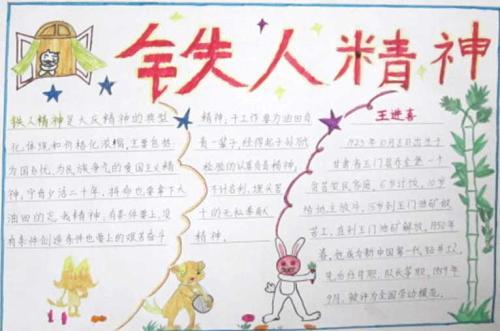 铁人精神
铁人精神是大庆精神的典型
化,体现和价格化浓缩,主要包括
为国分忧,为民族争气的爱国主义精
神,宁肯少活二十年,拼命也要拿下大
油田的忘我精神;有条件要上,没
有条件创造条件也要上的艰苦奋斗
精神;干工作要为油田负
责一辈子,经得起子孙
检验的认真负责精神;
不计名利,埋头苦
干的无私奉献
精神。
王进喜
1923年10月8日出生于
甘肃省玉门县赤金堡一个
贫苦农民家庭。6岁讨饭,10岁
给地主放牛,15岁到玉门油矿做
苦工,直到玉门油矿解放。1950年
春,他成为新中国第一代钻井工人,
先后任司钻、队长等职。1959年
9月,被评为全国劳动模范。